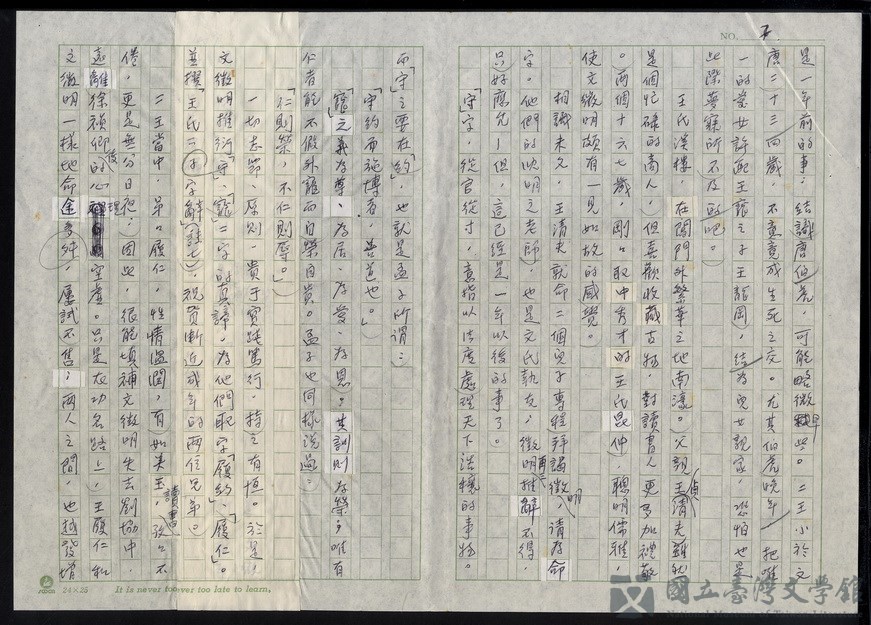 NO. 7.
是一年前的事,結識唐伯虎,可能略微早些。二王小於文
唐二十三四歲,不竟竟成生死之交。尤其伯虎晚年,把唯
一的愛女許配王龍之子王龍岡,結為兒女親家,恐怕也是
此際夢寐所不及的吧。
王氏溪樓,在閶門外繁華之地南濠。父親王清夫雖然
是個忙碌的商人,但喜歡收藏古物,對讀書人更多加禮敬
。兩個十六七歲,剛剛取中秀才的王氏昆仲,聰明儒雅,
使文徵明頗有一見如故的感覺。
相識未久,王清夫就命二個兒子專程拜謁徵明,請存命
字。他們的啟明之老師,也是文氏執友,徵明推辭不得,
只好應允!但,這已經是一年以後的事了。
「守」字,從官從寸,意指以法度處理天下浩穰的事物。
而「守」之要在「約」,也就是孟子所謂:
「守約而施博者,善道也。」
「寵」之義為尊、為居、為愛、為恩。其訓則為榮;唯有
仁者能不假外寵而自榮自貴。孟子也同樣說過:
「仁則榮,不仁則辱。」
一切志節、原則,貴于實踐篤行,持之有恆。於是,
文徵明推衍「守」、「寵」二字的真諦,為他們取字「履約」、「履仁」。
並撰「王氏二子字辭」(註七),祝賀漸近成年的兩位兄弟。
二王當中,弟弟履仁,性情溫潤,有如美玉,讀書孜孜不
倦,更是無分日夜。因此,很能填補文徵明失去劉協中,
遠離徐禎卿後的心理空虛。只是在功名路上,王履仁和
文徵明一樣地命途多舛,屢試不售;兩人之間,也越發惜
24×25
It is never too late to learn,
國立臺灣文學館